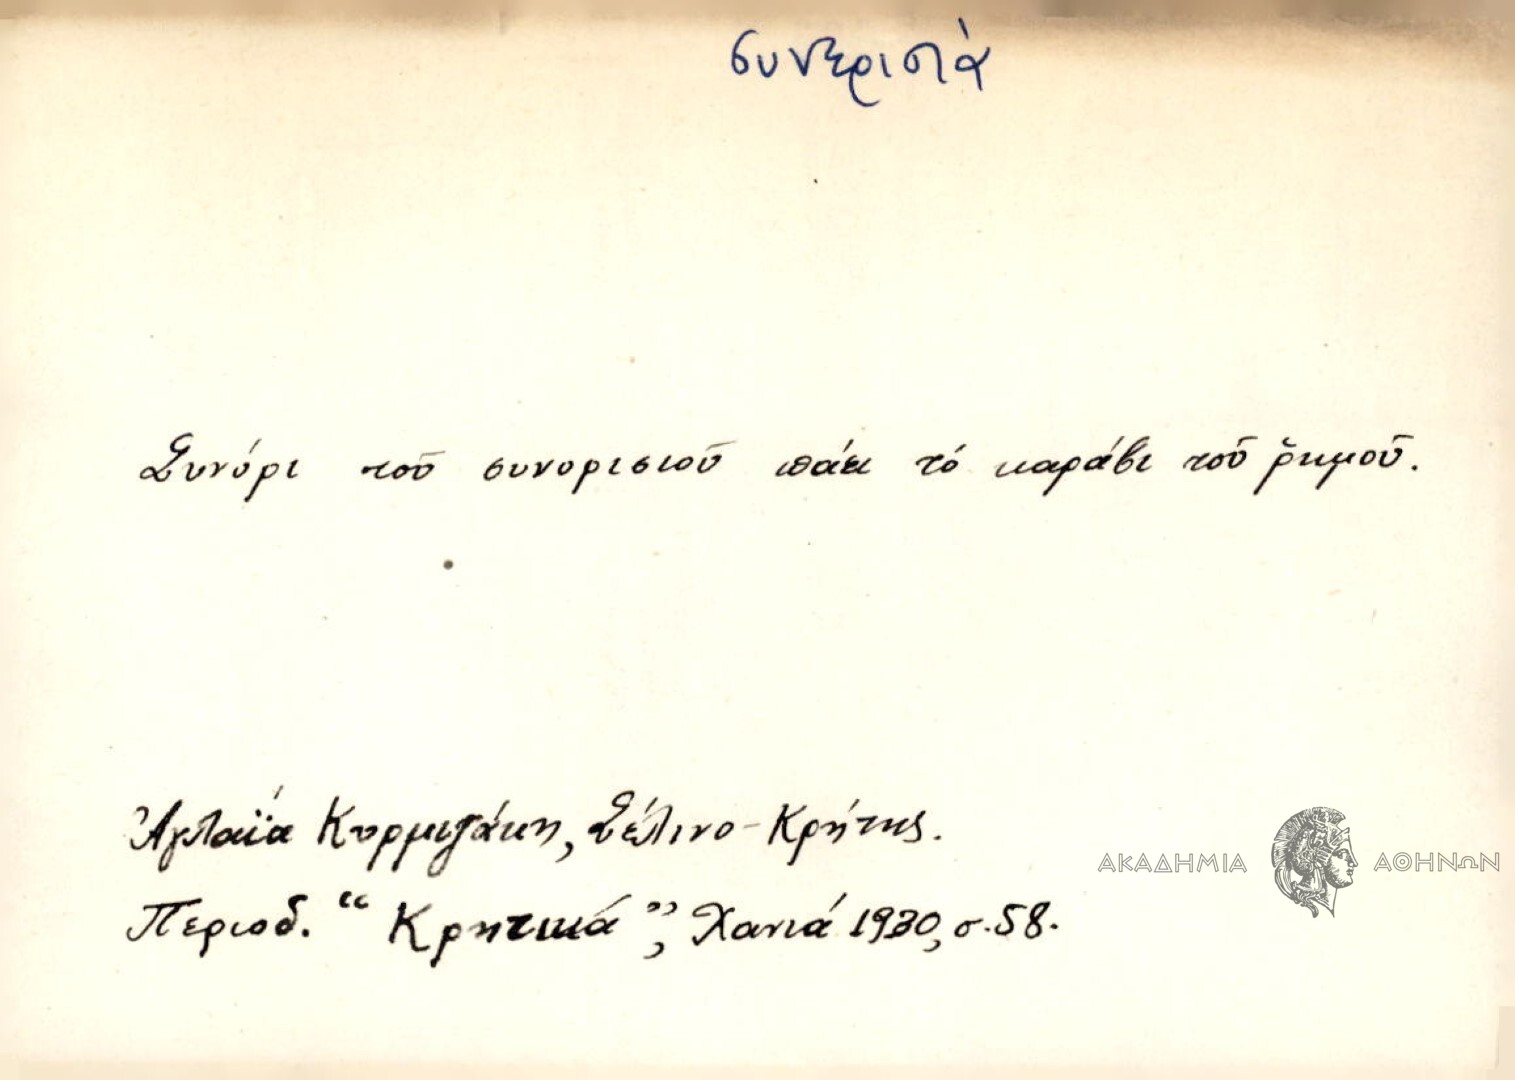 συνερισιά
Συνόρι τοῦ συνορισιοῦ πάει τό καράβι τοῦ ῥημοῦ.
Ἀγλαΐα Κυρμιζάκη, Σέλινο-Κρήτης.
Περιοδ. "Κρητικά", Χανιά 1930, σ. 58.
ΑΚΑΔΗΜΙΑ ΑΘΗΝΩΝ